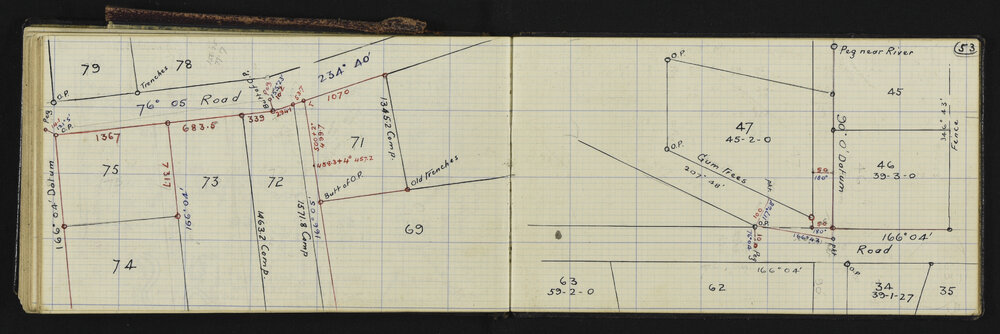 53
79
78
Trenches
O.P.
Peg
76° 05 Road
234° 40'
1367
683.5
339
1070
1345.2 Comp.
71
458.3+4° 457.2
Old Trenches
Butt of O.P.
75
7317
73
72
166° 04' Datum
166° 04'
1463.2 Comp.
1571.8 Comp
166° 05'
69
74
O.P.
Peg near River
45
346° 43'
Fence
47
45-2-0
30° 0' Datum
O.P.
Gum Trees
207° 48'
50
180°
46
39-3-0
100
50
180°
166° 43'
166° 04'
Road
Peg
166° 04'
O.P.
63
59-2-0
62
34
39-1-27
35